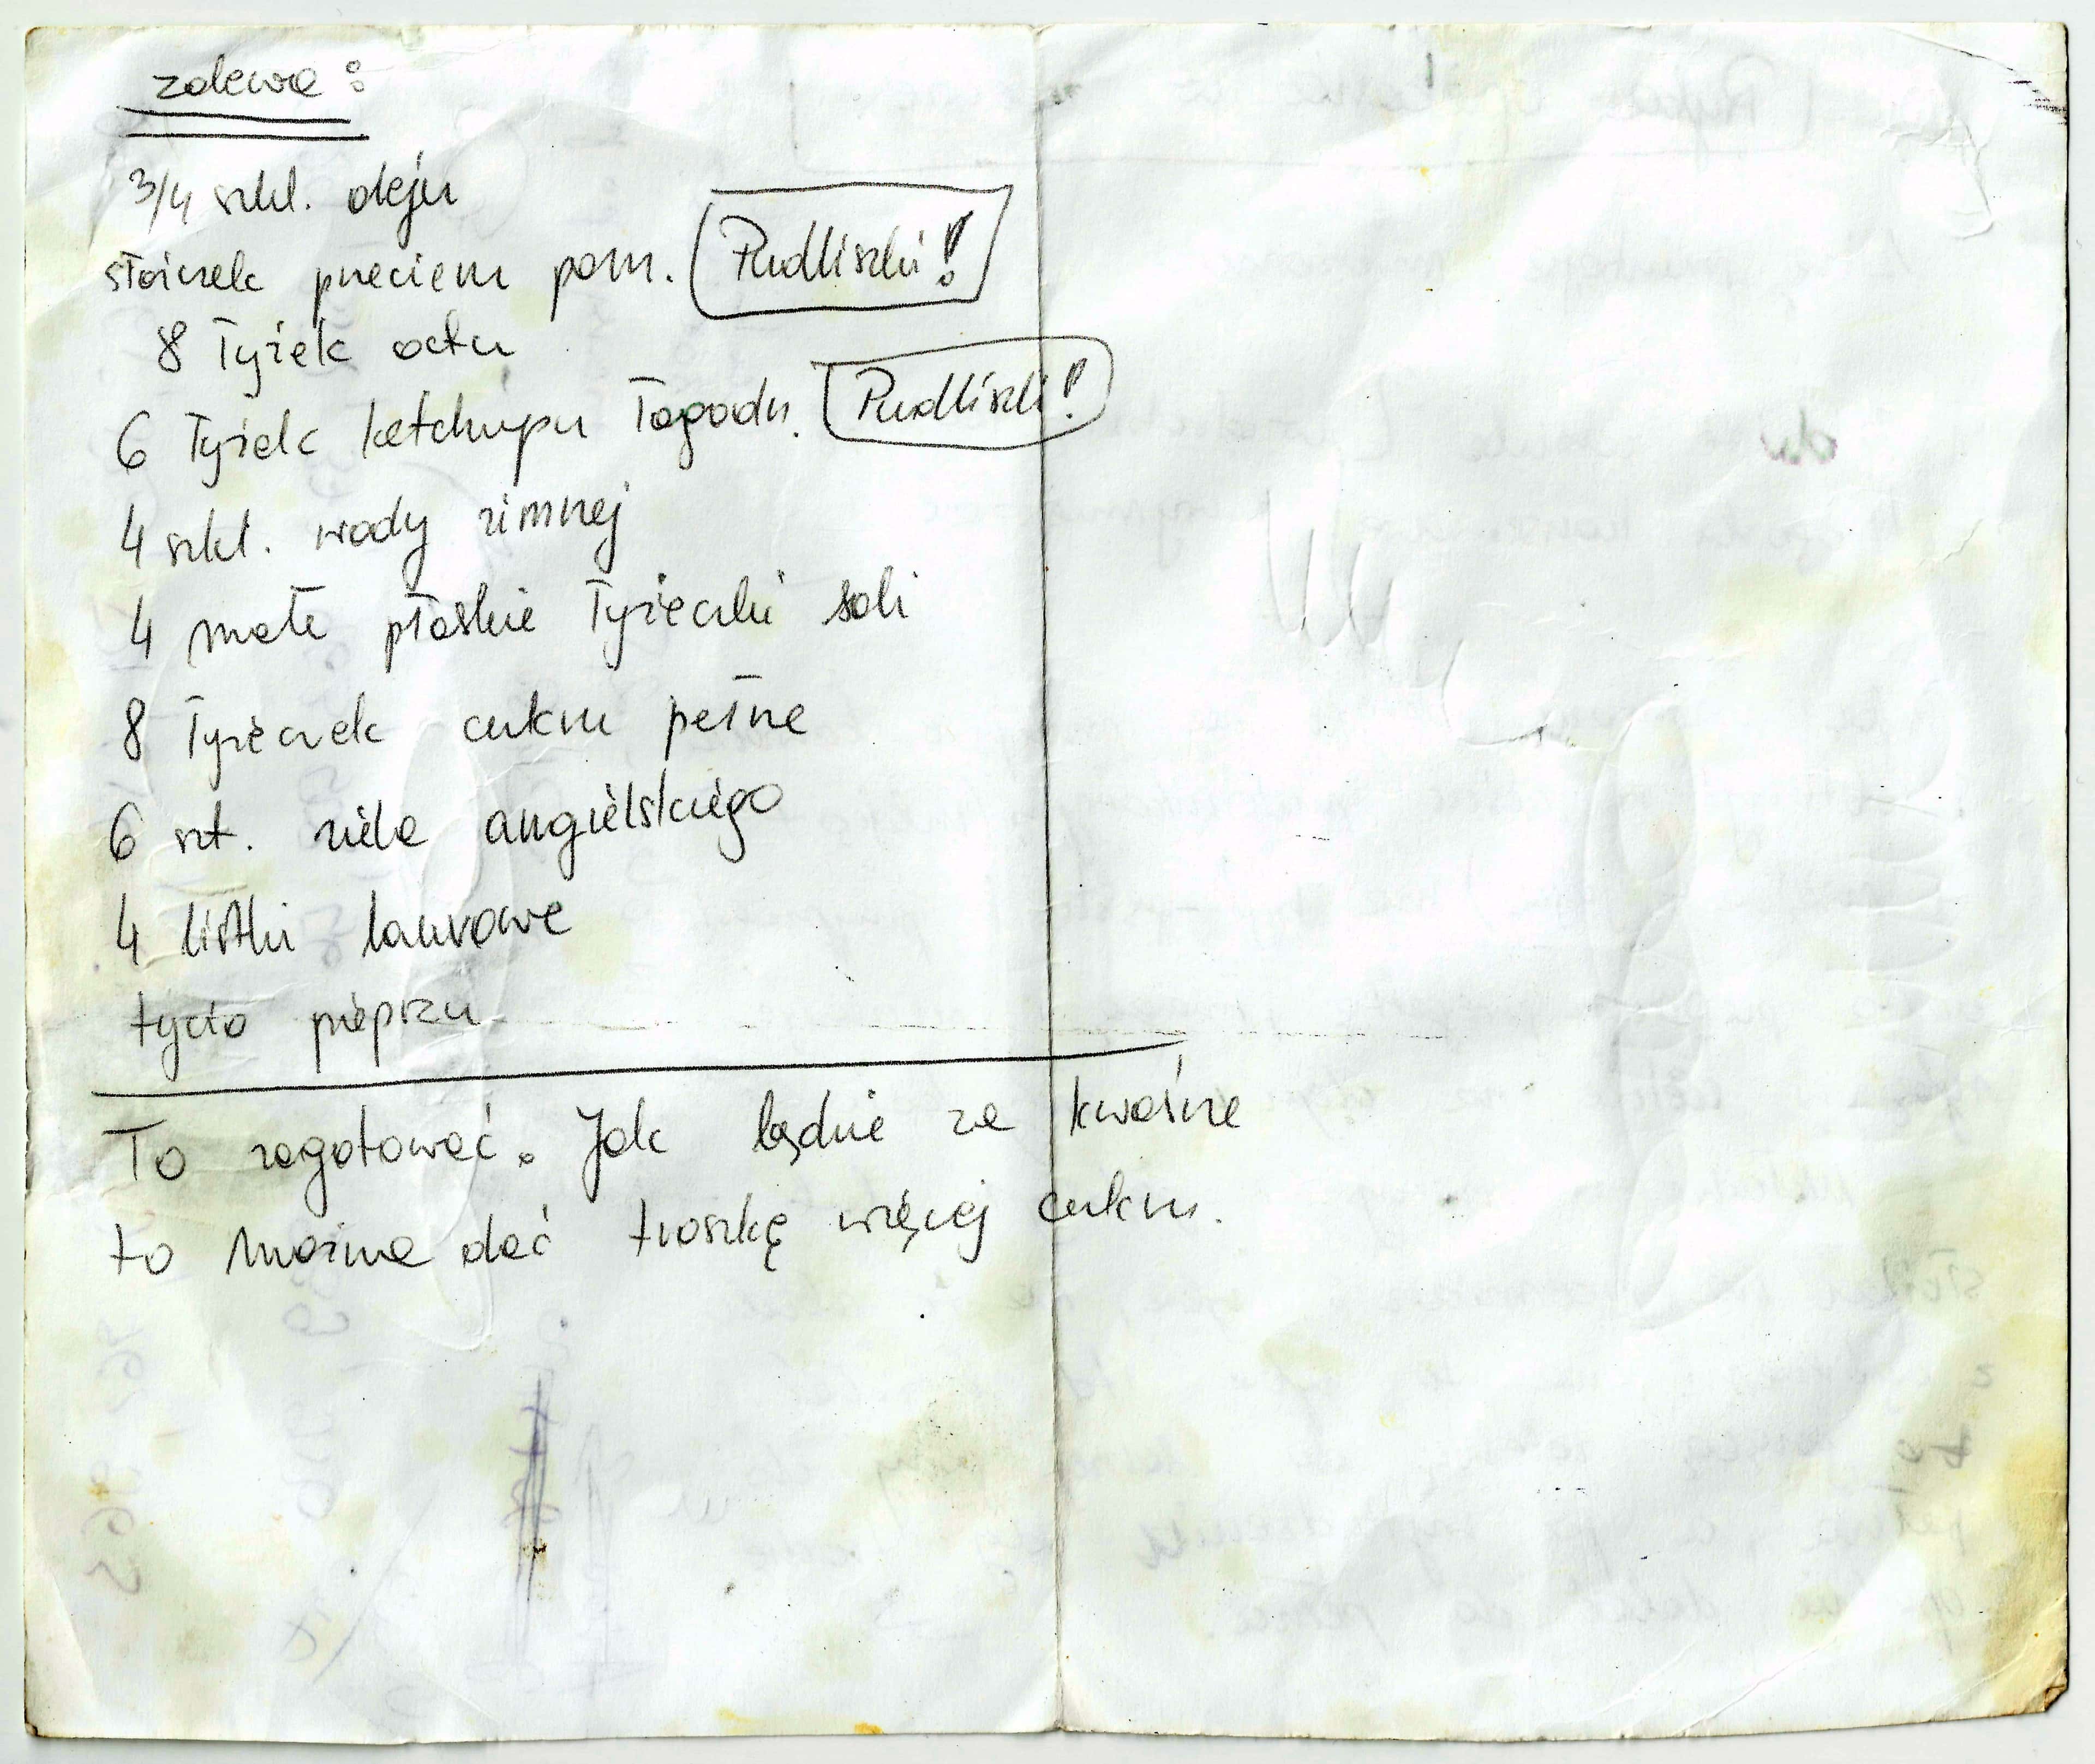 zalewa:
3/4 szkl. oleju
słoiczek przecieru pom. Pudliszki!
8 łyżek octu
6 łyżek ketchupu łagodn. Pudliszki!
4 szkl. wody zimnej
4 małe płaskie łyżeczki soli
8 łyżeczek cukru pełne
6 szt. ziela angielskiego
4 listki laurowe
tycio pieprzu
To zagotować. Jak będzie za kwaśne
to można dać troszkę więcej cukru.